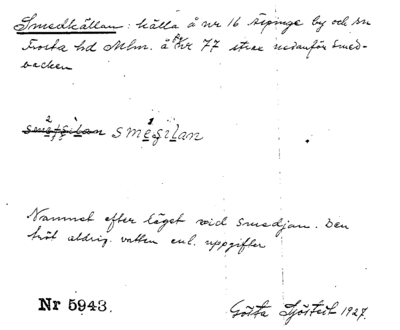 Smedkällan: källa å nr 16 Äspinge by och sn
Frosta hd Mlm. å fk nr 77 strax nedanför Smed-
backen
smesilan
Namnet efter läget vid smedjan. Den
tröt aldrig vatten enl. uppgifter
Nr 5943.
Gösta Sjöstedt 1927.